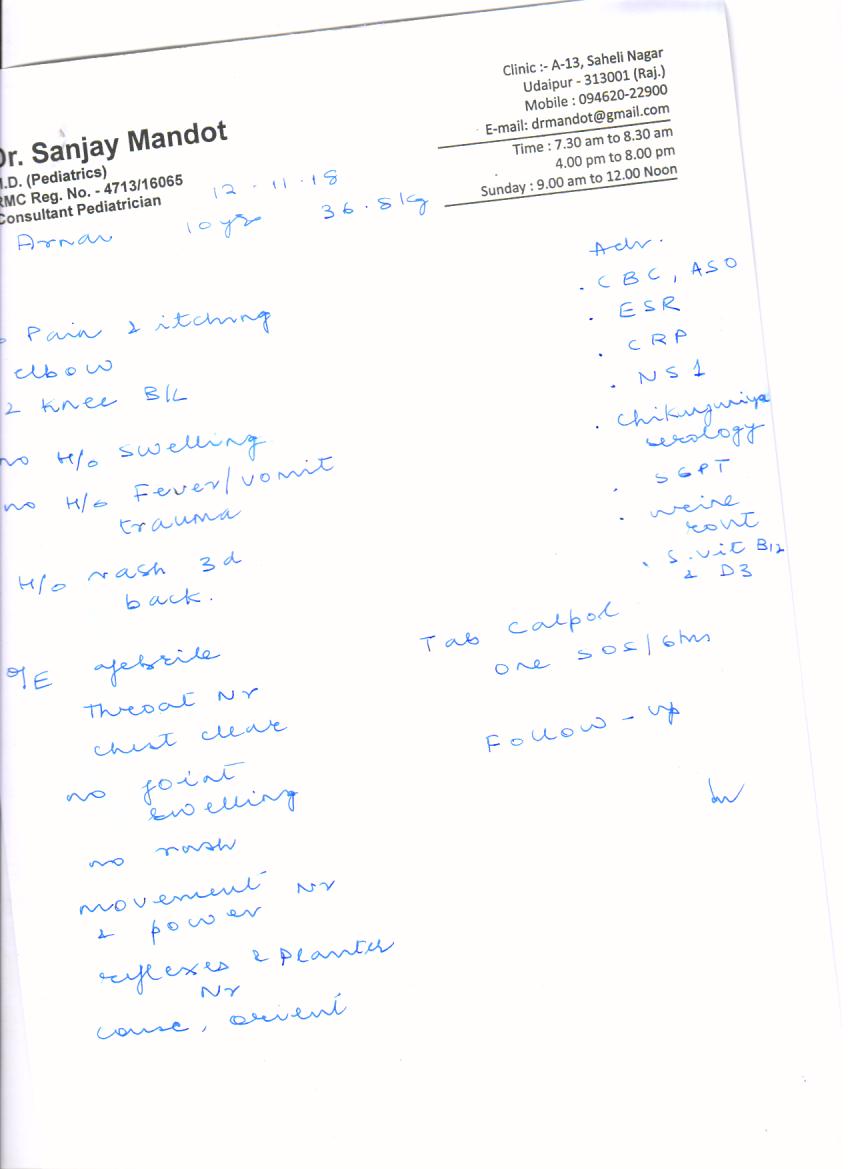 Dr. Sanjay Mandot
.D. (Pediatrics)
RMC Reg. No. - 4713/16065
Consultant Pediatrician
Clinic :- A-13, Saheli Nagar
Udaipur - 313001 (Raj.)
Mobile : 094620-22900
E-mail: drmandot@gmail.com
Time : 7.30 am to 8.30 am
4.00 pm to 8.00 pm
Sunday : 9.00 am to 12.00 Noon
12.11.18
10 yrs 36.8 kg
Pain & itching
elbow
& Knee B/L
no H/o swelling
no H/o Fever/vomit
trauma
H/o rash 3d
back.
O/E afebrile
Throat Nr
chest clear
no joint
swelling
no rash
movement Nr
& power
reflexes & Planter
Nr
orient
Adv.
. CBC, ASO
. ESR
. CRP
. NS1
. Chikugunya
serology
. SGPT
.
. S. Vit B12
& D3
Tab Calpol
one SOS/6hrs
Follow-up